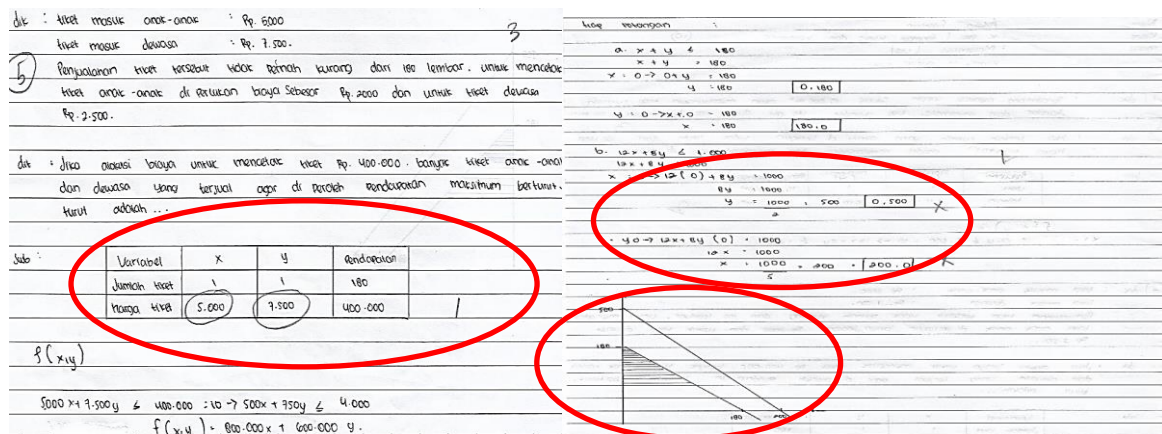 dit : tiket masuk anak-anak : Rp. 5000
3
tiket masuk dewasa : Rp. 7.500.
5 Penjualanan tiket tersebut tidak pernah kurang dari 180 lembar. untuk mencetak
tiket anak-anak di perlukan biaya sebesar Rp. 2000 dan untuk tiket dewasa
Rp. 2.500.
dit : Jika alokasi biaya untuk mencetak tiket Rp. 400.000. banyak tiket anak-anak
dan dewasa yang terjual agar di peroleh pendapatan maksimum berturut.
turut adalah ...
Jwb :
Variabel x y Pendapatan
Jumlah tiket 1 1 180
Harga tiket 5.000 7.500 400.000
1
f(x,y)
5000 x + 7.500 y ≤ 400.000 :10 -> 500x + 750y ≤ 4.000
f(x,y) = 800.000 x + 600.000 y.
:
a. x + y ≤ 180
x + y = 180
x = 0 -> 0 + y = 180
y = 180 0.180
y = 0 -> x + 0 = 180
x = 180 180.0
b. 12x + 8y ≤ 1.000
12x + 8y
x -> 12(0) + 8y = 1000
8y = 1000
y = 1000/2 = 500 0.500 x
y 0 -> 12x + 8y (0) = 1000
12x = 1000
x = 1000/5 = 200 = 200.0 x
500
180
180 200